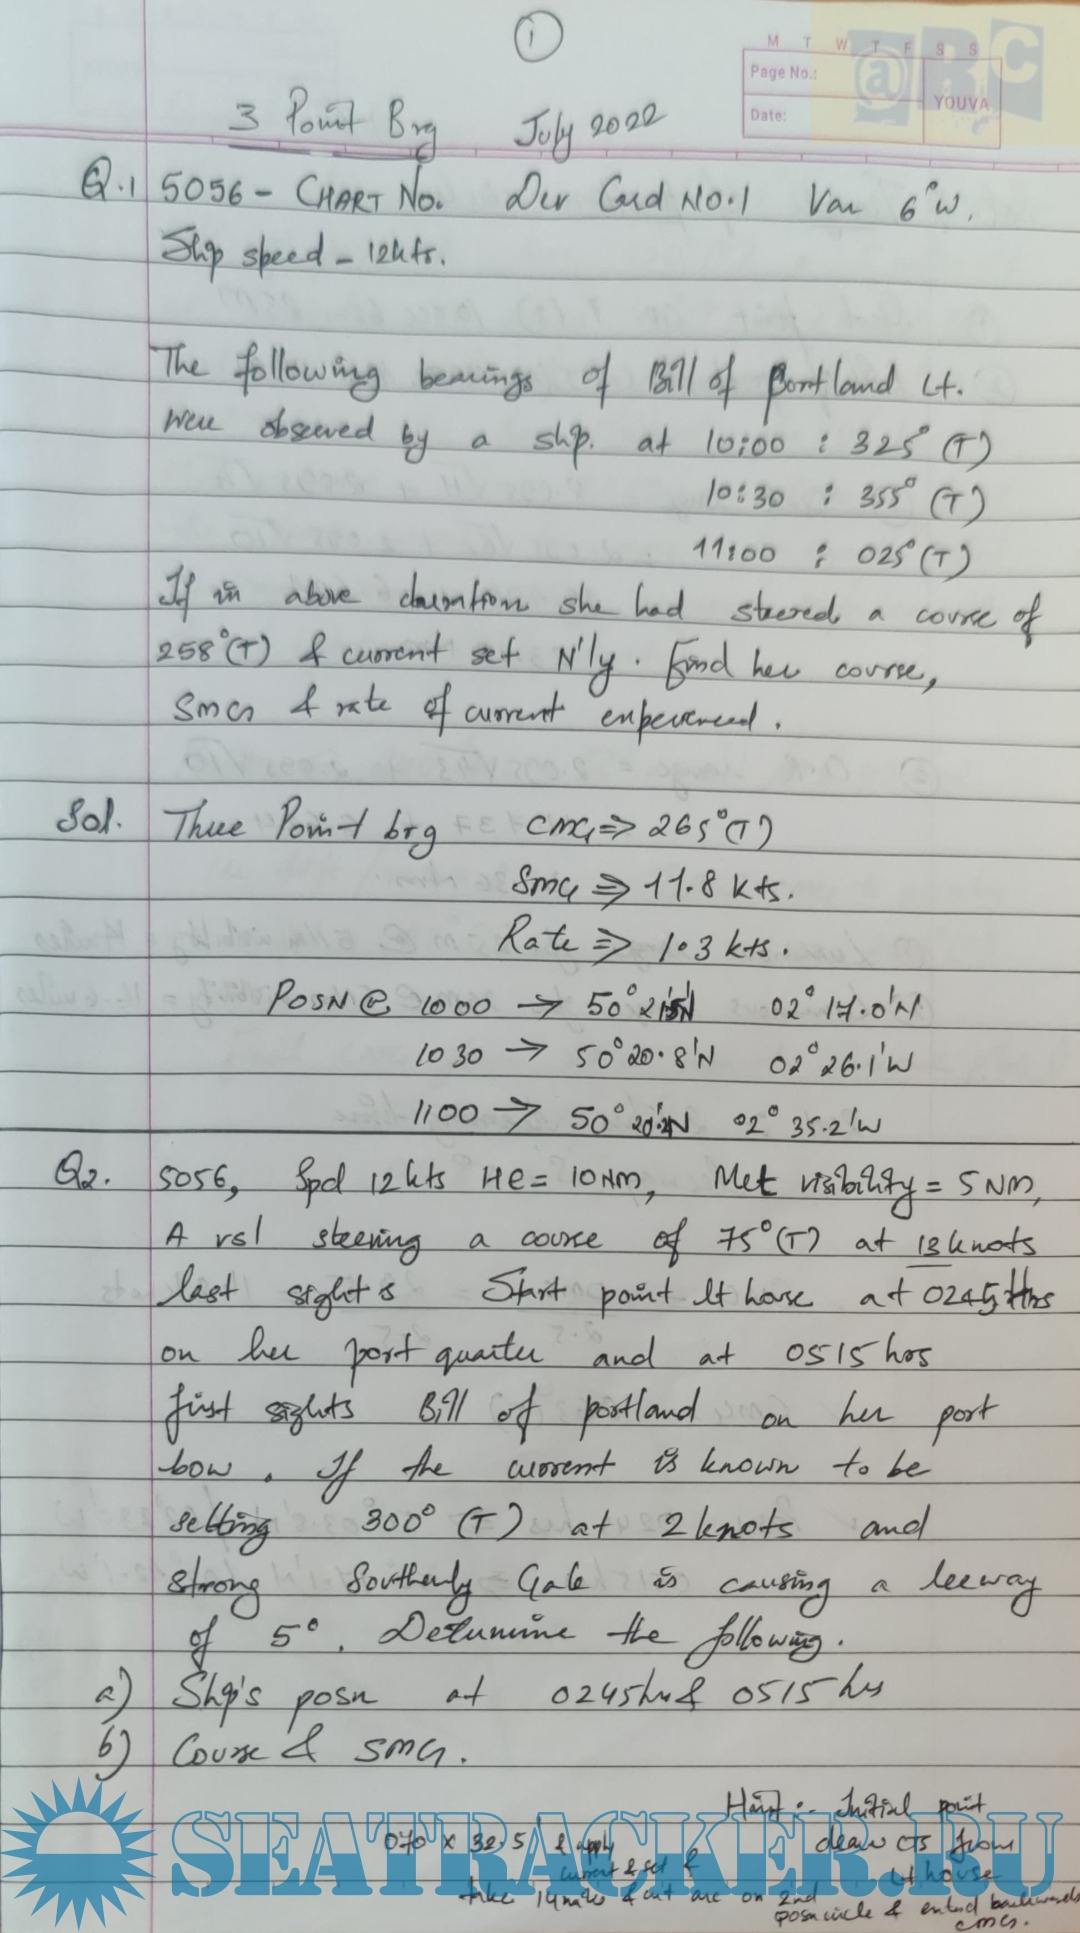 1
M T W T F S S
@RC
Page No.:
YOUVA
Date:
3 Point Brg July 2022
Q.1 5056 - CHART No. Dev Card No.1 Var 6°W.
Ship speed - 12kts.
The following bearings of Bill of Portland Lt.
were observed by a shp. at 10:00 : 325° (T)
10:30 : 355° (T)
11:00 : 025° (T)
If in above duration she had steered a course of
258° (T) & current set N'ly. Find her course,
SMG & rate of current experienced.
Sol. Three Point brg CMG ⇒ 265° (T)
SMG ⇒ 11.8 kts.
Rate ⇒ 1.3 kts.
POSN @ 1000 → 50° 02° 17.0'N
1030 → 50° 20.8'N 02° 26.1'W
1100 → 50° 02° 35.2'W
Q2. 5056, Spd 12kts HE= 10NM, Met visibility = 5NM,
A vsl steering a course of 75° (T) at 13 knots
last sights Start point lt house at 0245 Hrs
on her port quarter and at 0515 hrs
first sights Bill of portland on her port
bow. If the current is known to be
setting 300° (T) at 2 knots and
strong Southerly Gale is causing a leeway
of 5°. Determine the following.
a) Shp's posn at 0245hrs & 0515 hrs
b) Course & SMG.
Hint:- Initial point
070 x 32.5' & apply draw CTS from
current & set & Lt house
take 14 miles & cut arc on 2nd
posn circle & extend backwards
CMG.
SEATRACKER.RU